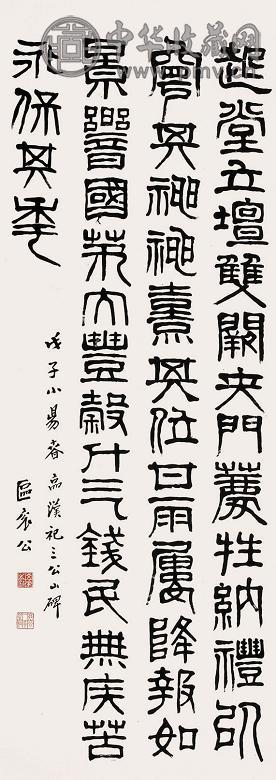 中华收藏网
起堂立壇雙闕夾門薦牲納禮以
寧其神神熹其位甘雨屢降報如
景響國界大豐穀斗三錢民無疾苦
永保其年
戊子小昜春臨漢祀三公山碑
區公